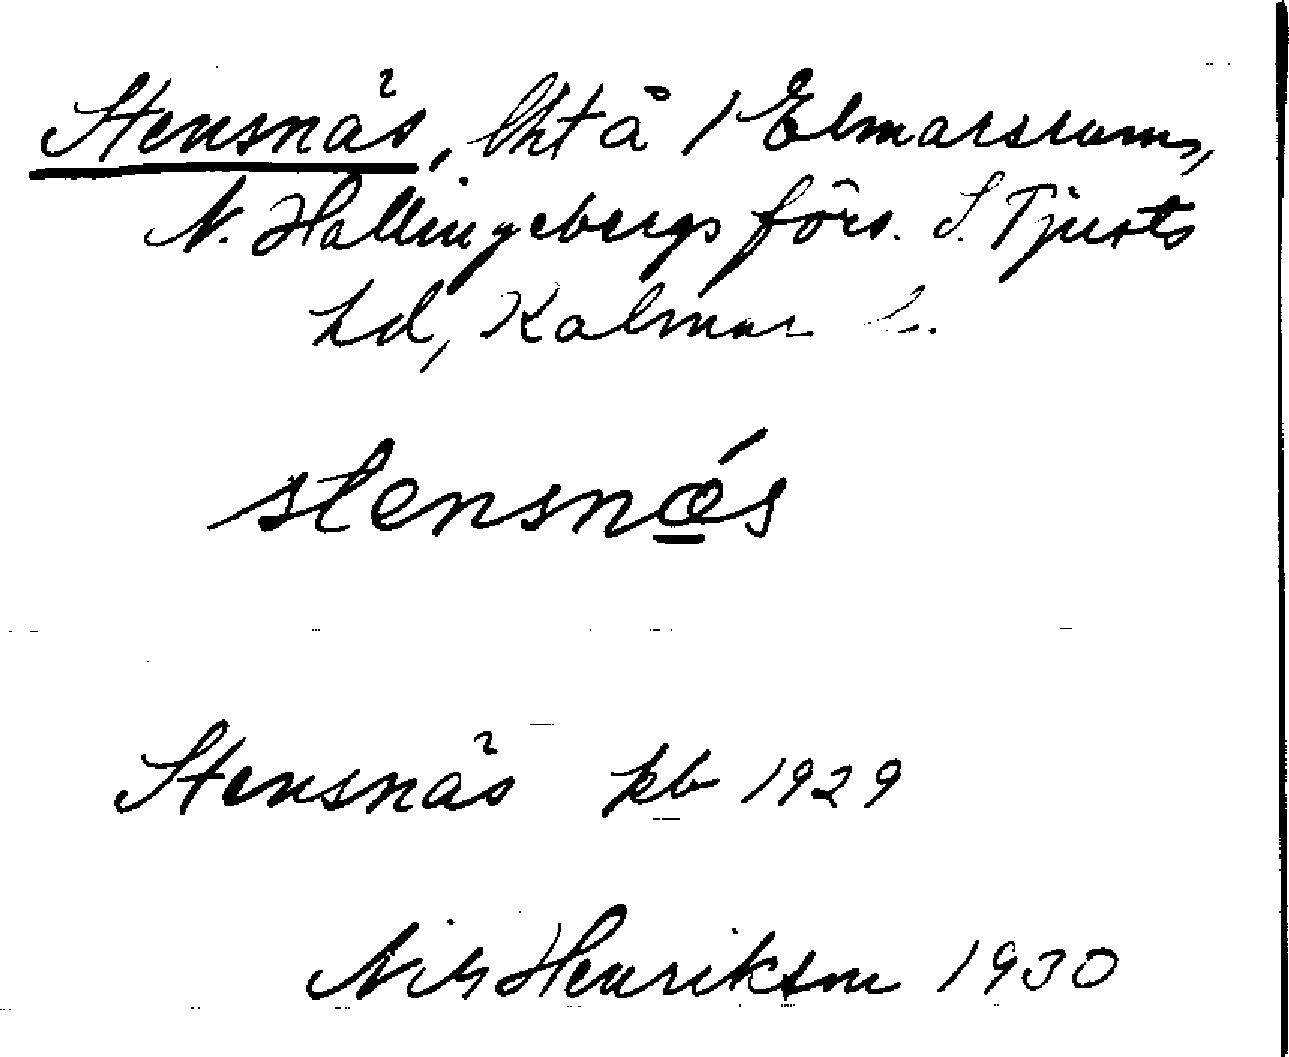 Stensnäs, lht å 1 Elmarsrum,
N. Hallingebergs förs. S. Tjusts
hd, Kalmar l.
stensnǽs
Stensnäs kb 1929
Nils Henrikson 1930